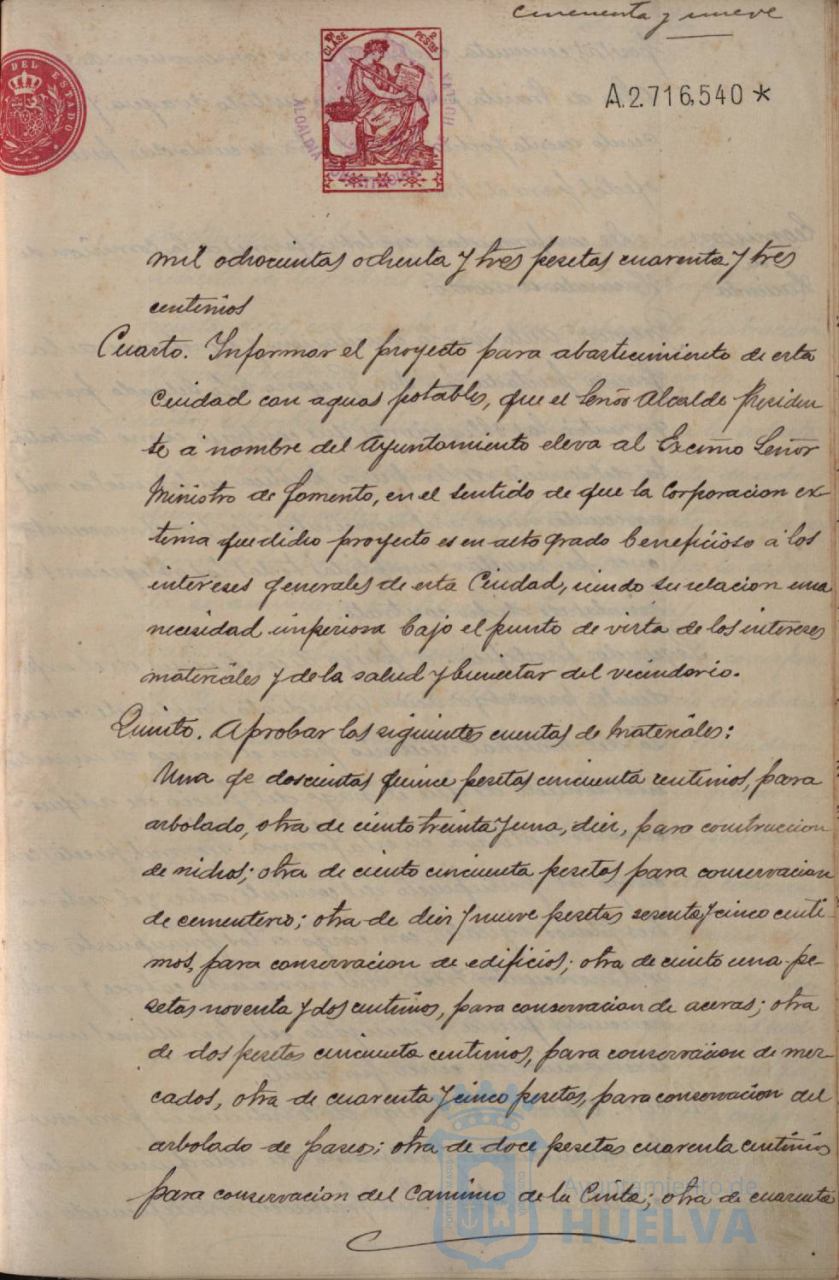 cincuenta y nueve
DEL ESTADO
CLASE
PESTAS 2
A.2.716,540 *
ALCALDIA
mil ochocientas ochenta y tres pesetas cuarenta y tres
centimos
Cuarto. Informar el proyecto para abastecimiento de esta
Ciudad con aguas potables, que el Señor Alcalde Presiden
te á nombre del Ayuntamiento eleva al Excmo Señor
Ministro de Fomento, en el sentido de que la Corporacion ex-
tima que dicho proyecto es en alto grado beneficioso á los
intereses generales de esta Ciudad, siendo su relacion una
necesidad imperiosa bajo el punto de vista de los intereses
materiales y de la salud y bienestar del vecindario.
Quinto. Aprobar las siguientes cuentas de materiales:
Una de doscientas quince pesetas cincuenta centimos, para
arbolado, otra de ciento treinta y una, diez, para construccion
de nichos; otra de ciento cincuenta pesetas para conservacion
de cementerio; otra de diez y nueve pesetas sesenta y cinco centi-
mos, para conservacion de edificios; otra de ciento una pe-
setas noventa y dos centimos, para conservacion de aceras; otra
de dos pesetas cincuenta centimos, para conservacion de mer-
cados, otra de cuarenta y cinco pesetas, para conservacion del
arbolado de paseo; otra de doce pesetas cuarenta centimos
para conservacion del Camino de la Cinta; otra de cuarenta
Ayuntamiento de
HUELVA